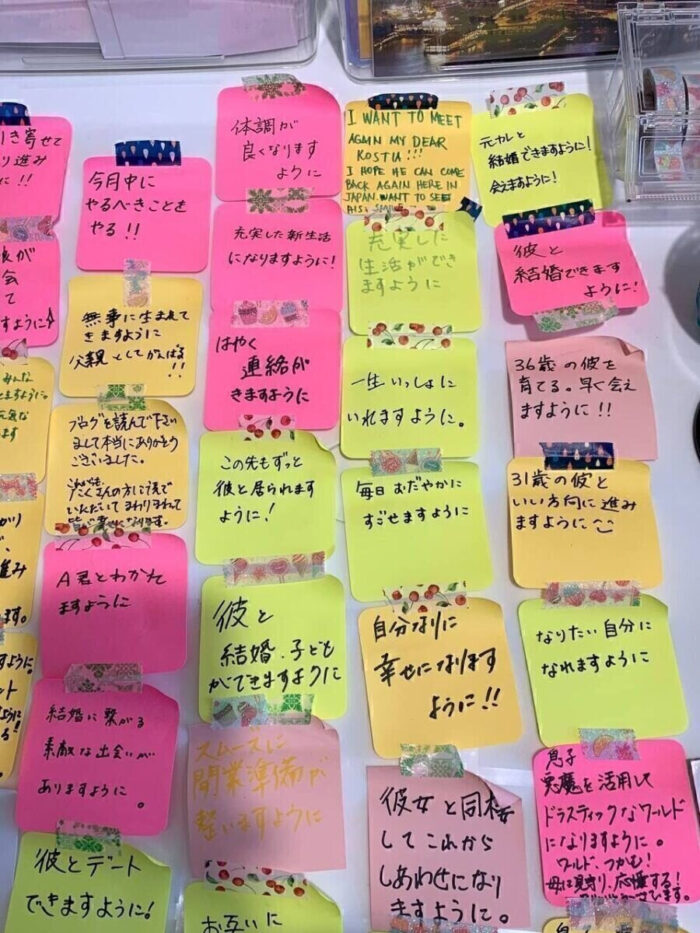 き寄せて
り進み
に!!
今月中に
やるべきことを
やる!!
体調が
良くなります
ように
I WANT TO MEET
AGAIN MY DEAR
KOSTIA!!!
I HOPE HE CAN COME
BACK AGAIN HERE IN
JAPAN. WANT TO SEE
元カレと
結婚できますように!
会えますように!
が
会
て
すように
無事に生まれて
きますように
父親としてがんばる
!!
充実した新生活
になりますように!
充実した
生活ができ
ますように
彼と
結婚できます
ように!
みんな
元気な
ます
ブログを読んで下さい
まして本当にありがとう
ございました。
たくさんの方に読んで
いただいて まわりまわって
はやく
連絡が
きますように
一生いっしょに
いれますように。
36歳の彼を
育てる。早く会え
ますように!!
A君とわかれ
ますように
この先もずっと
彼と居られます
ように!
毎日おだやかに
すごせますように
31歳の彼と
いい方向に進み
ますように
結婚に繋がる
素敵な出会いが
ありますように。
彼と
結婚、子ども
ができますように
自分なりに
幸せになります
ように!!
なりたい自分に
なれますように
彼とデート
できますように!
スムーズに
開業準備が
整いますように
彼女と同棲
してこれから
しあわせになり
ますように。
息子
悪魔を活用して
ドラスティックなワールド
になりますように。
ワールド、つかも!
母は見守り、応援する!
お互いに